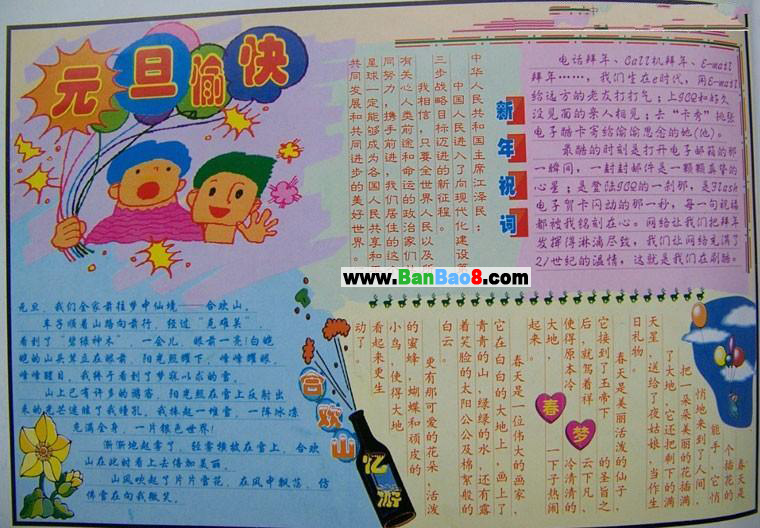 元旦愉快
www.BanBao8.com
新年祝词
中华人民共和国主席江泽民：
中国人民进入了向现代化建设第
三步战略目标迈进的新征程。
我相信，只要全世界人民以及所
有关心人类前途和命运的政治家们共
同努力，携手前进，我们居住的这个
星球一定能够成为各国人民共享和平、
共同发展和共同进步的美好世界。
电话拜年、Call机拜年、E-mail
拜年……，我们生在e时代，用E-mail
给远方的老友打打气；上ICQ和好久
没见面的亲人相见；去“卡秀”挑张
电子酷卡寄给偷偷思念的她(他)。
最酷的时刻是打开电子邮箱的那
一瞬间，一封封邮件是一颗颗真挚的
心星；是登陆ICQ的一刹那，是Flash
电子贺卡闪动的那一秒，每一句祝福
都被我铭刻在心。网络让我们把拜年
发挥得淋漓尽致，我们让网络充满了
21世纪的温情，这就是我们在刷酷。
元旦，我们全家前往梦中仙境——合欢山。
车子顺着山路向前行，经过“克难关”，
看到了“碧绿神木”，一会儿，眼前一亮！白皑
皑的山头耸立在眼前，阳光照耀下，峰峰耀眼，
峰峰醒目，我终于看到了梦寐以求的雪。
山上已有许多的游客，阳光照在雪上反射出
来的光芒迷眩了我瞳孔，我捧起一堆雪，一阵冰凉
充满全身，一片银色世界！
渐渐地起雾了，轻雾横放在雪上，合欢
山在此时看上去倍加美丽。
山风吹起了片片雪花，在风中飘荡，仿
佛雪在向我微笑。
合欢山
忆游
春梦
春天是
一个插花的
能手，它悄
悄地来到了人间，
把一朵朵美丽的花插满
了大地，它还把剩下的满
天星，送给了夜姑娘，当作生
日礼物。
春天是美丽活泼的仙子，
它接到了玉帝下的圣旨之
后，就驾着祥云下凡，
使得原本冷冷清清的
大地，一下子热闹
起来。
春天是一位伟大的画家，
它在白白的大地上，画上了
青青的山，绿绿的水，还有露
着笑脸的太阳公公及棉絮般的
白云。
更有那可爱的花朵，活泼
的蜜蜂，蝴蝶和顽皮的
小鸟，使得大地
看起来更生
动了。